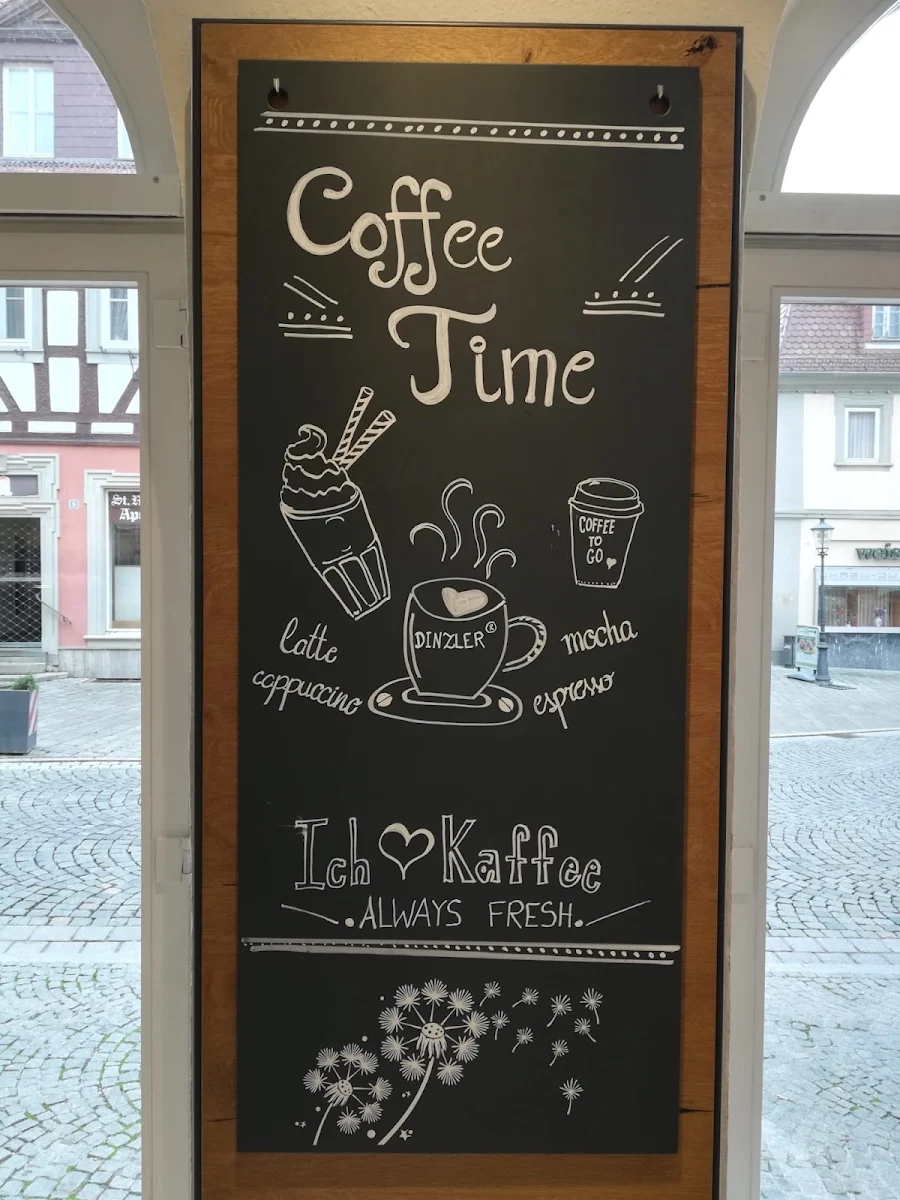 Coffee
Time
COFFEE
TO
GO
DINZLER®
latte
cappuccino
mocha
espresso
Ich ♥ Kaffee
ALWAYS FRESH